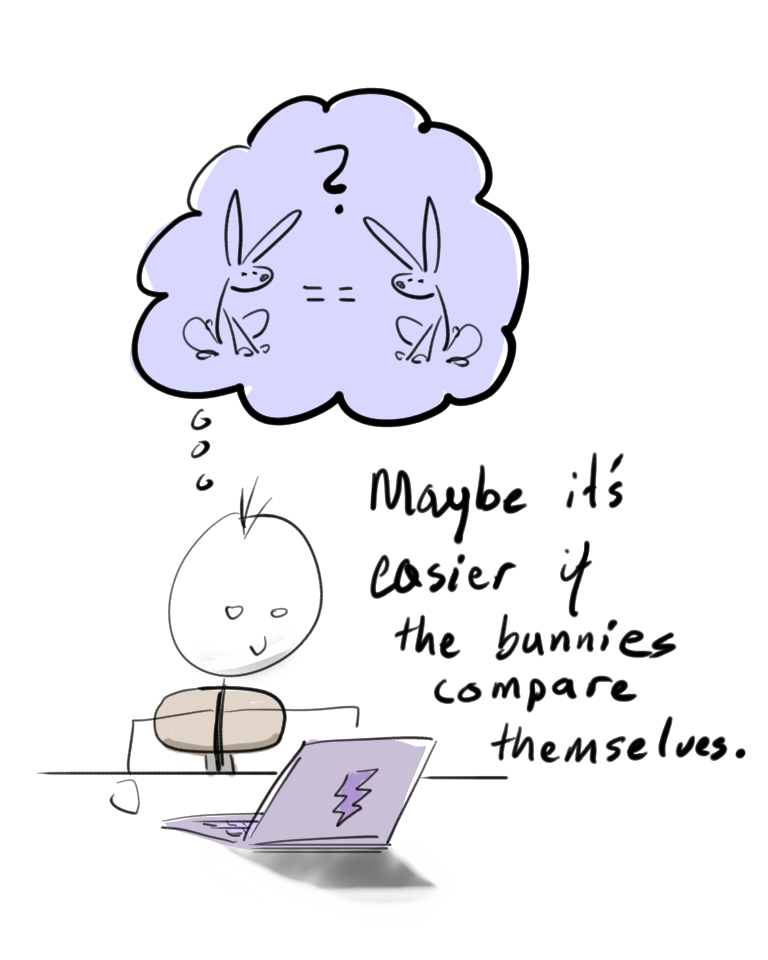 ?
==
Maybe it's
easier if
the bunnies
compare
themselves.